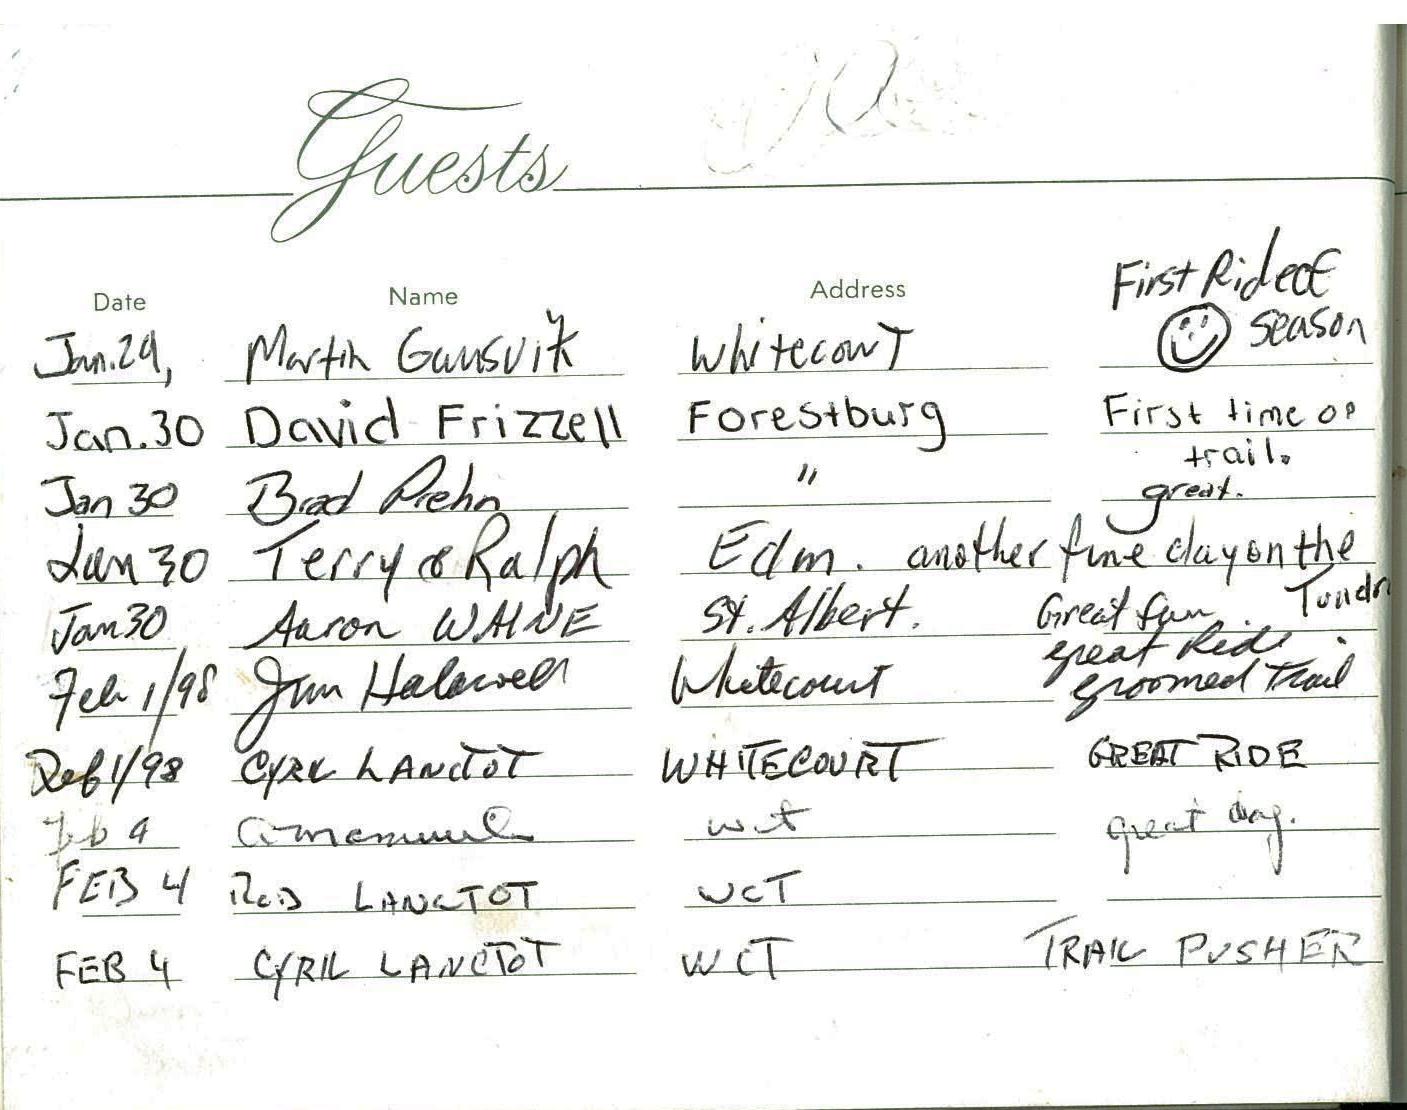 Guests
Date Name Address First Ride of
Jan. 29, Martin Gunsvik Whitecourt season
Jan. 30 David Frizzell Forestburg First time on
trail.
Jan 30 Brad Prehn " great.
Jan 30 Terry & Ralph Edm. another fine day on the
Tundra
Jan 30 Aaron WAINE St. Albert. Great fun
great Ride
Feb 1/98 Jim Halowell Whitecourt groomed Trail
Feb 1/98 CYRIL LANCTOT WHITECOURT GREAT RIDE
Feb 4 wct great day.
FEB 4 LANCTOT WCT
FEB 4 CYRIL LANCTOT WCT TRAIL PUSHER